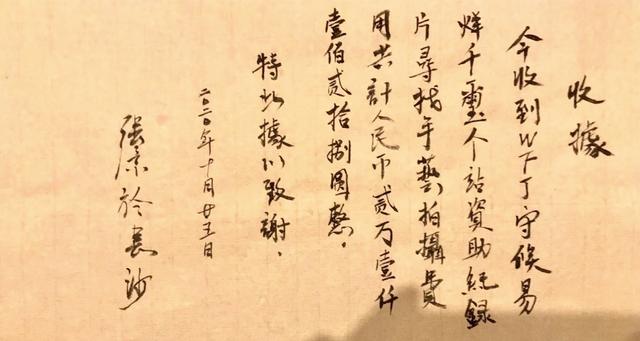 收據
今收到 守候易
烊千璽个站資助紀錄
片尋找手藝拍攝費
用共計人民币貳万壹仟
壹佰貳拾捌圓整。
特此據以致謝。
二〇二〇年十月廿五日
張景於長沙